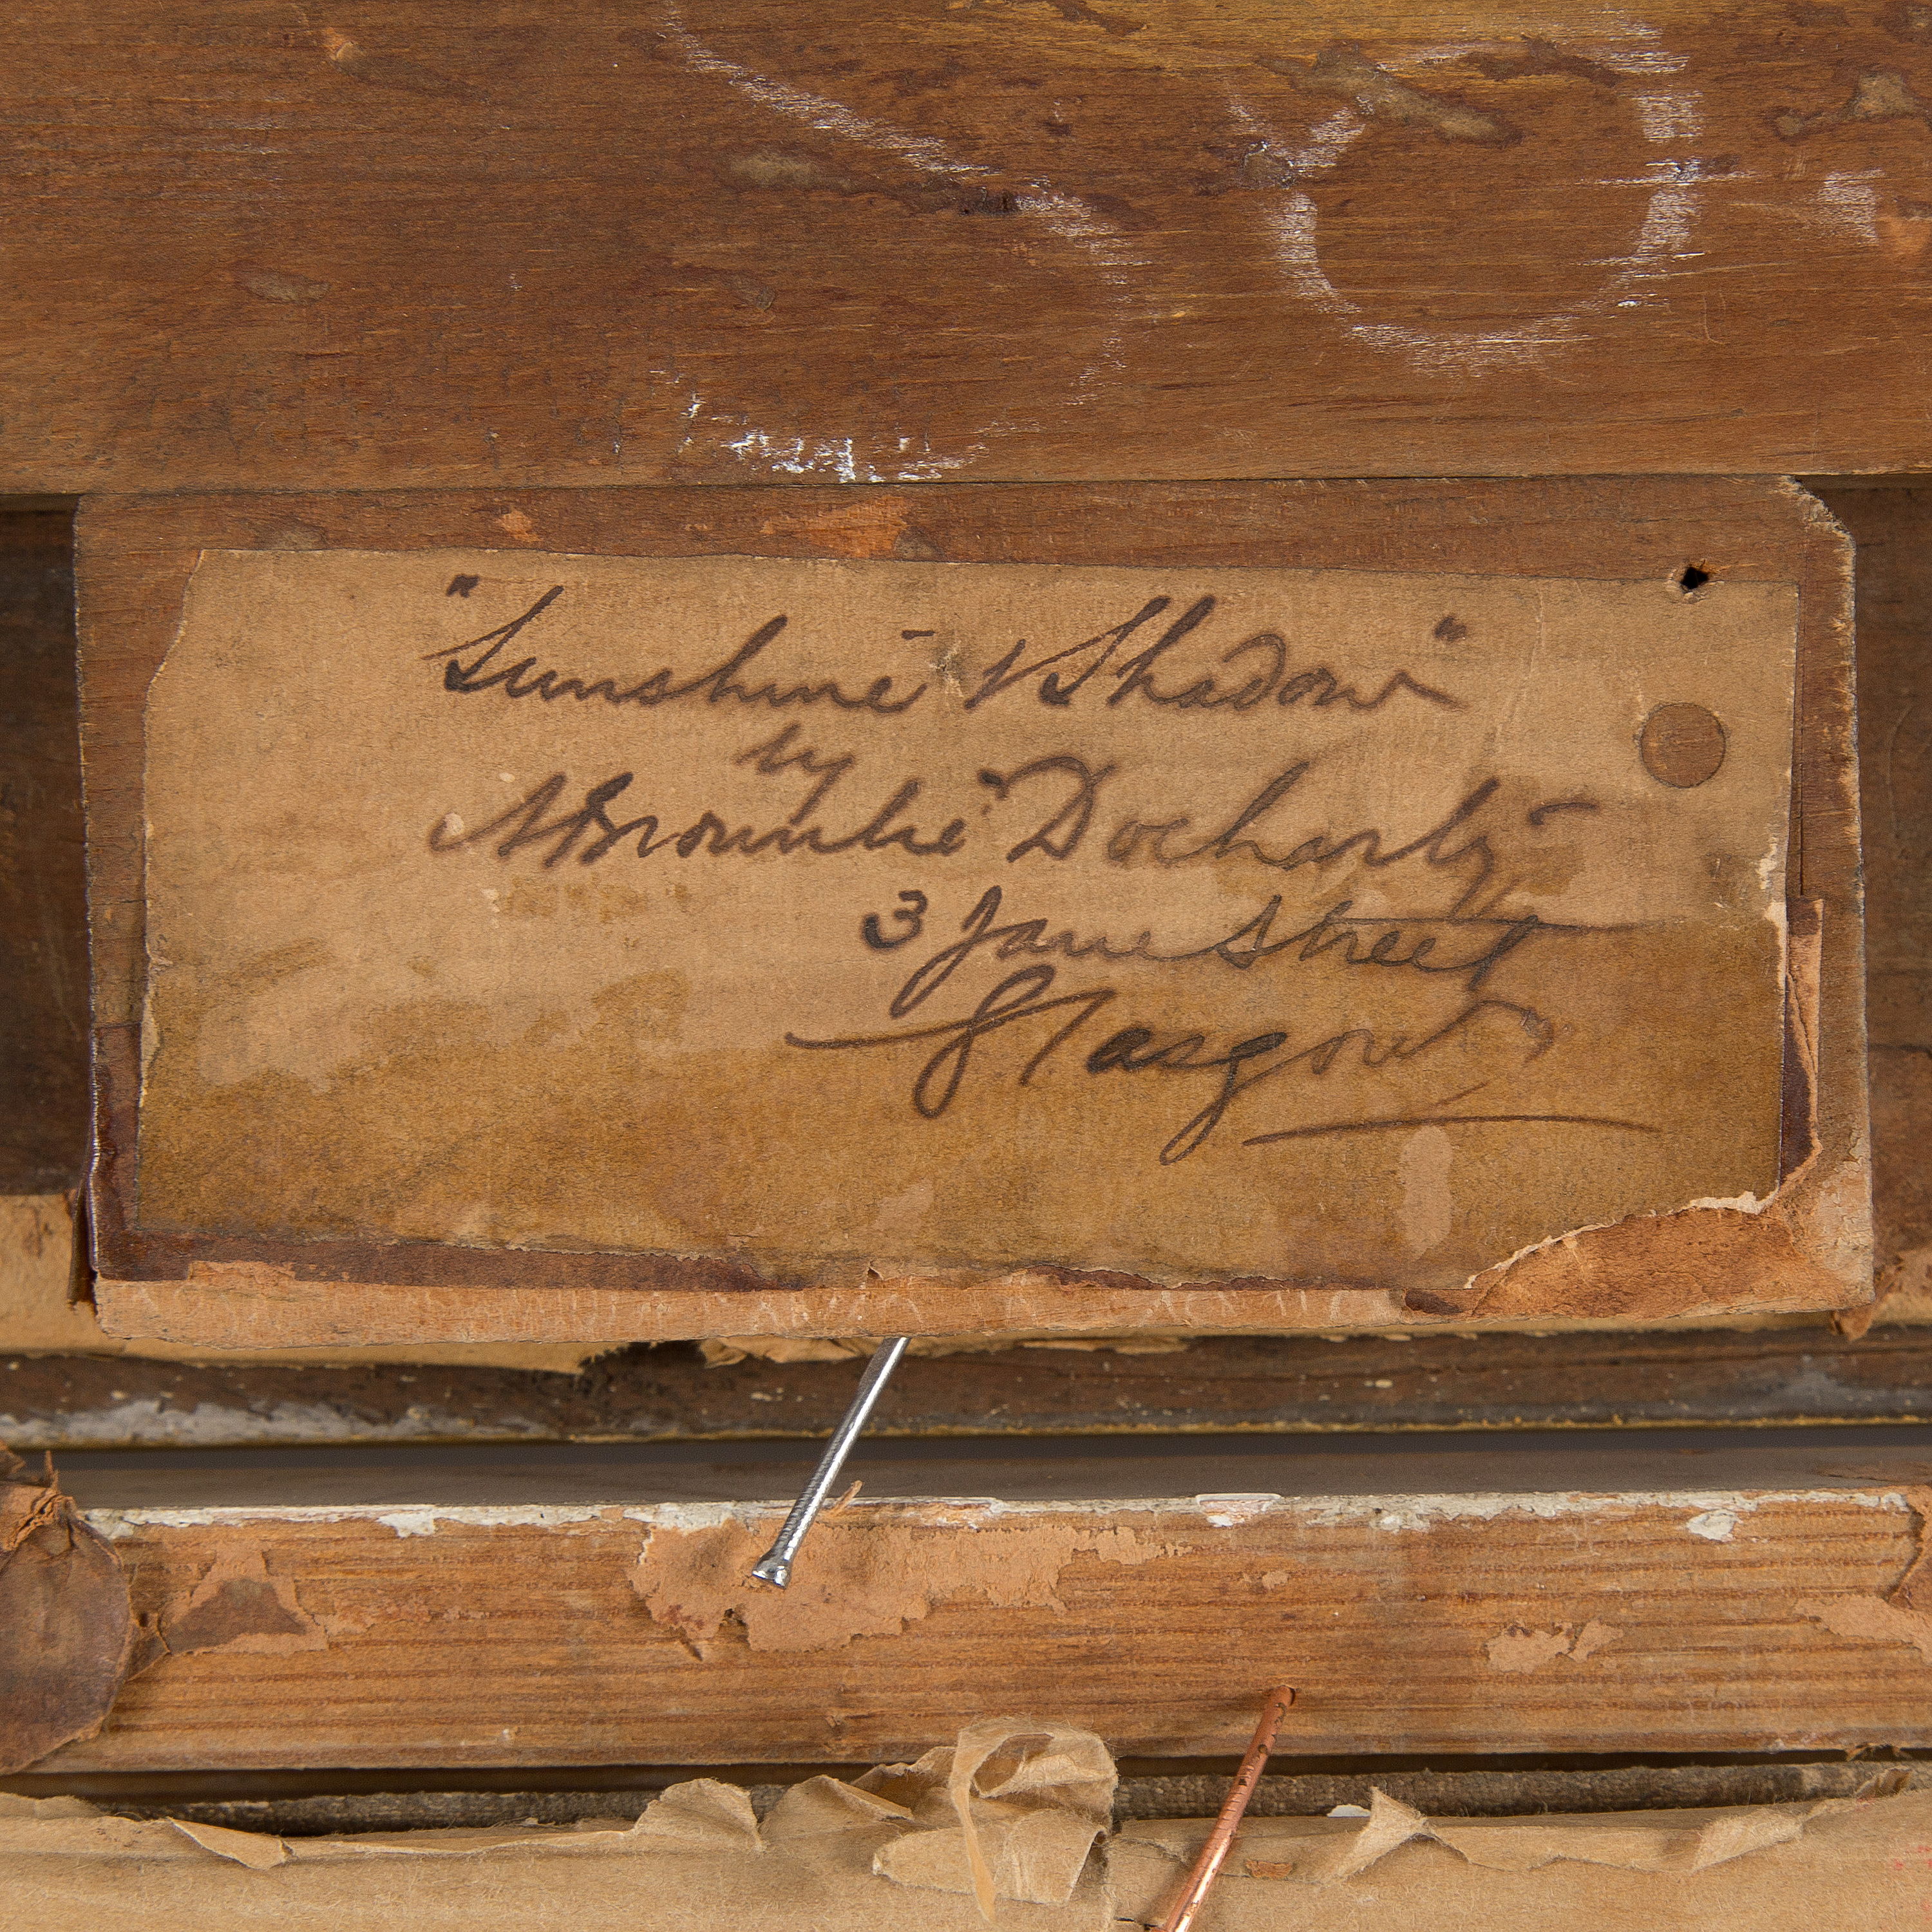 "Sunshine & Shadow"
by
A Brownlie Docharty
3 Jane Street
Glasgow